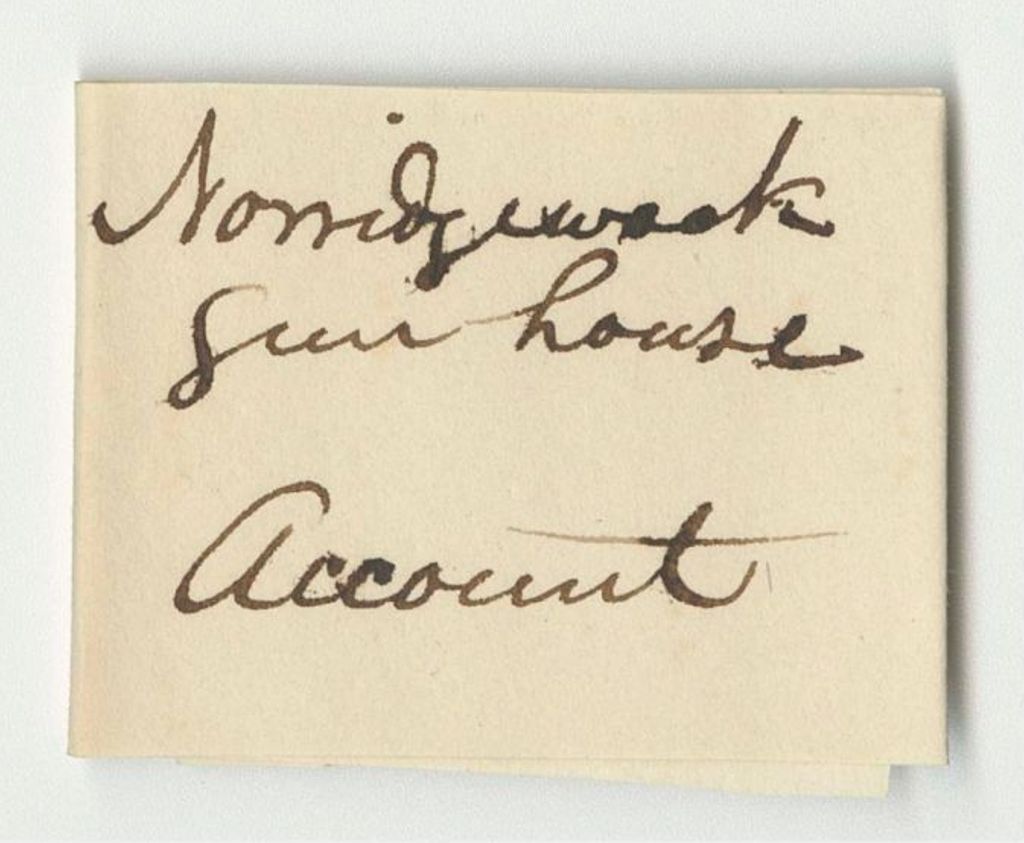 Norridgewock
Gun house
Account